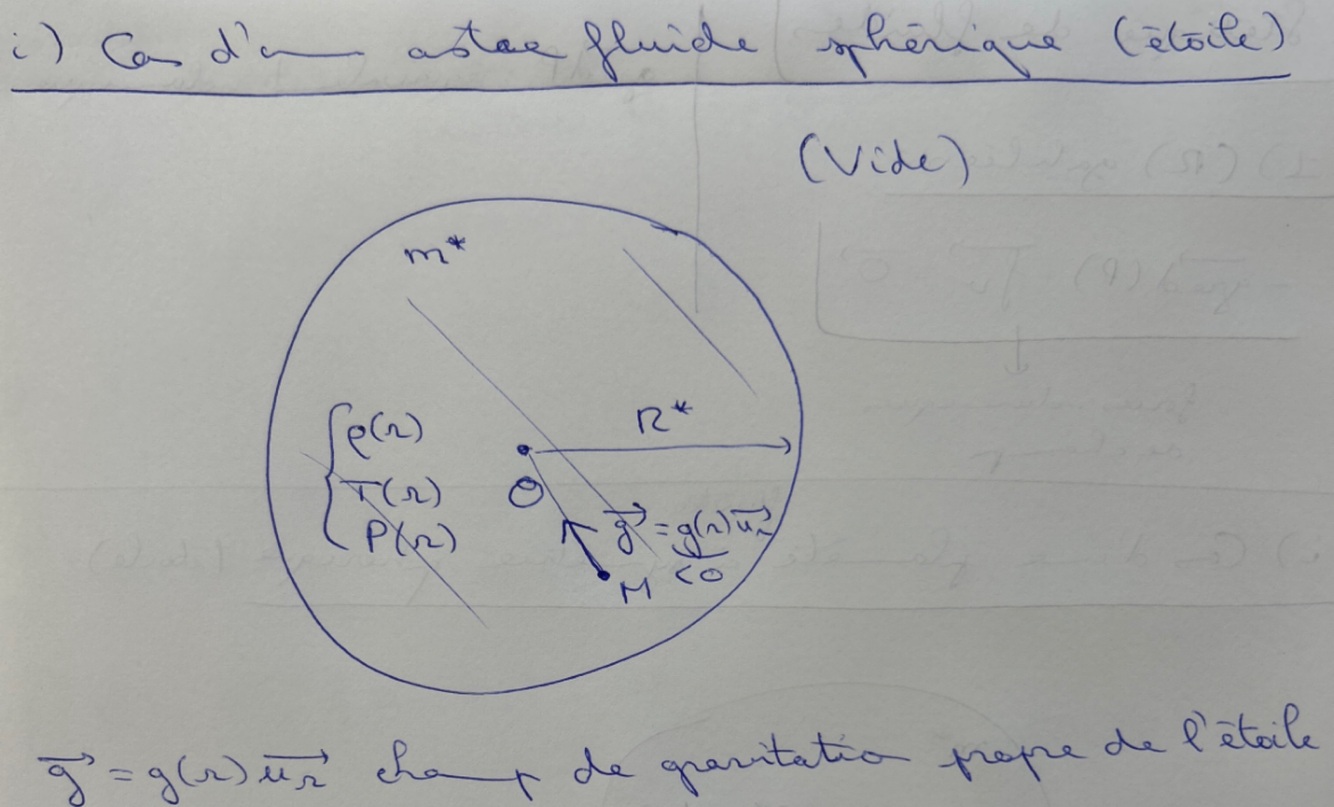 i) Cas d'un astre fluide sphérique (étoile)
(Vide)
m*
R*
ρ(r)
T(r)
P(r)
O
g⃗ = g(r) u⃗r
<0
M
g⃗ = g(r) u⃗r champ de gravitation propre de l'étoile